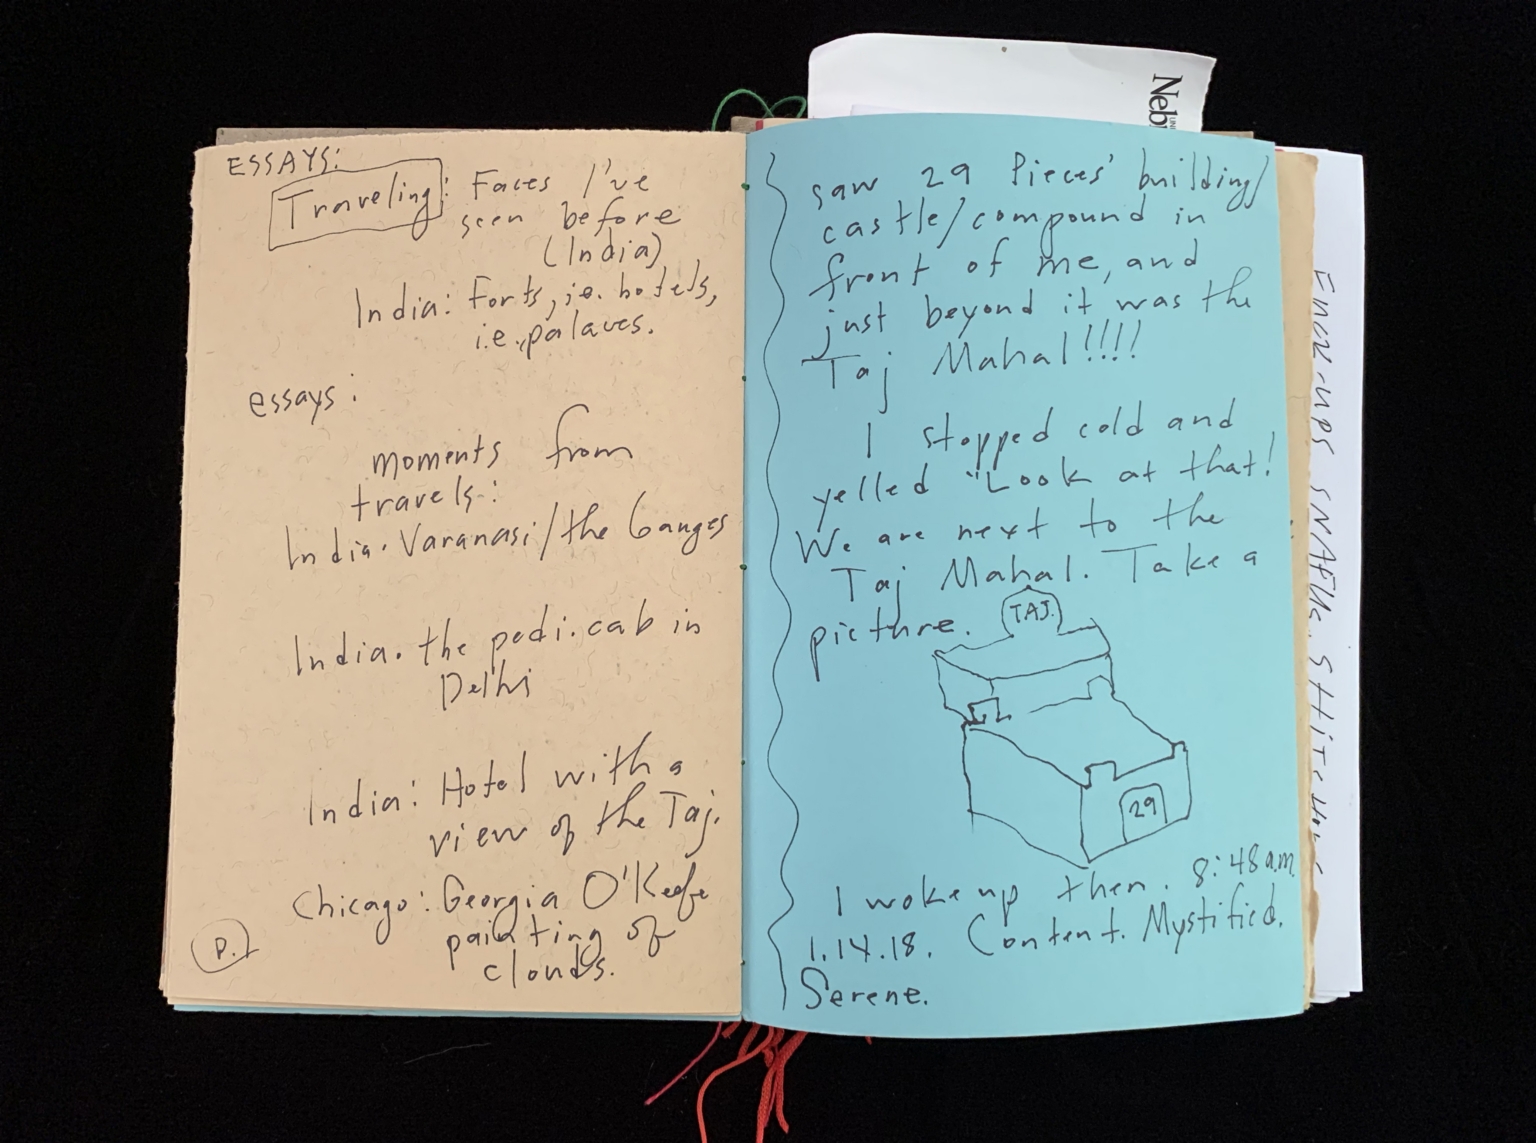 ESSAYS:
Traveling: Faces I've
seen before
(India)
India: Forts, i.e. hotels,
i.e. palaces.
essays:
moments from
travels:
India. Varanasi/the Ganges
India. the pedi.cab in
Delhi
India: Hotel with a
view of the Taj.
Chicago: Georgia O'Keefe
painting of
clouds.
P.
saw 29 Pieces' building/
castle/compound in
front of me, and
just beyond it was the
Taj Mahal!!!!
I stopped cold and
yelled "Look at that!
We are next to the
Taj Mahal. Take a
picture.
TAJ.
29
I woke up then. 8:48 a.m.
1.14.18. Content. Mystified.
Serene.
Neb
UNI
SNAFUs.